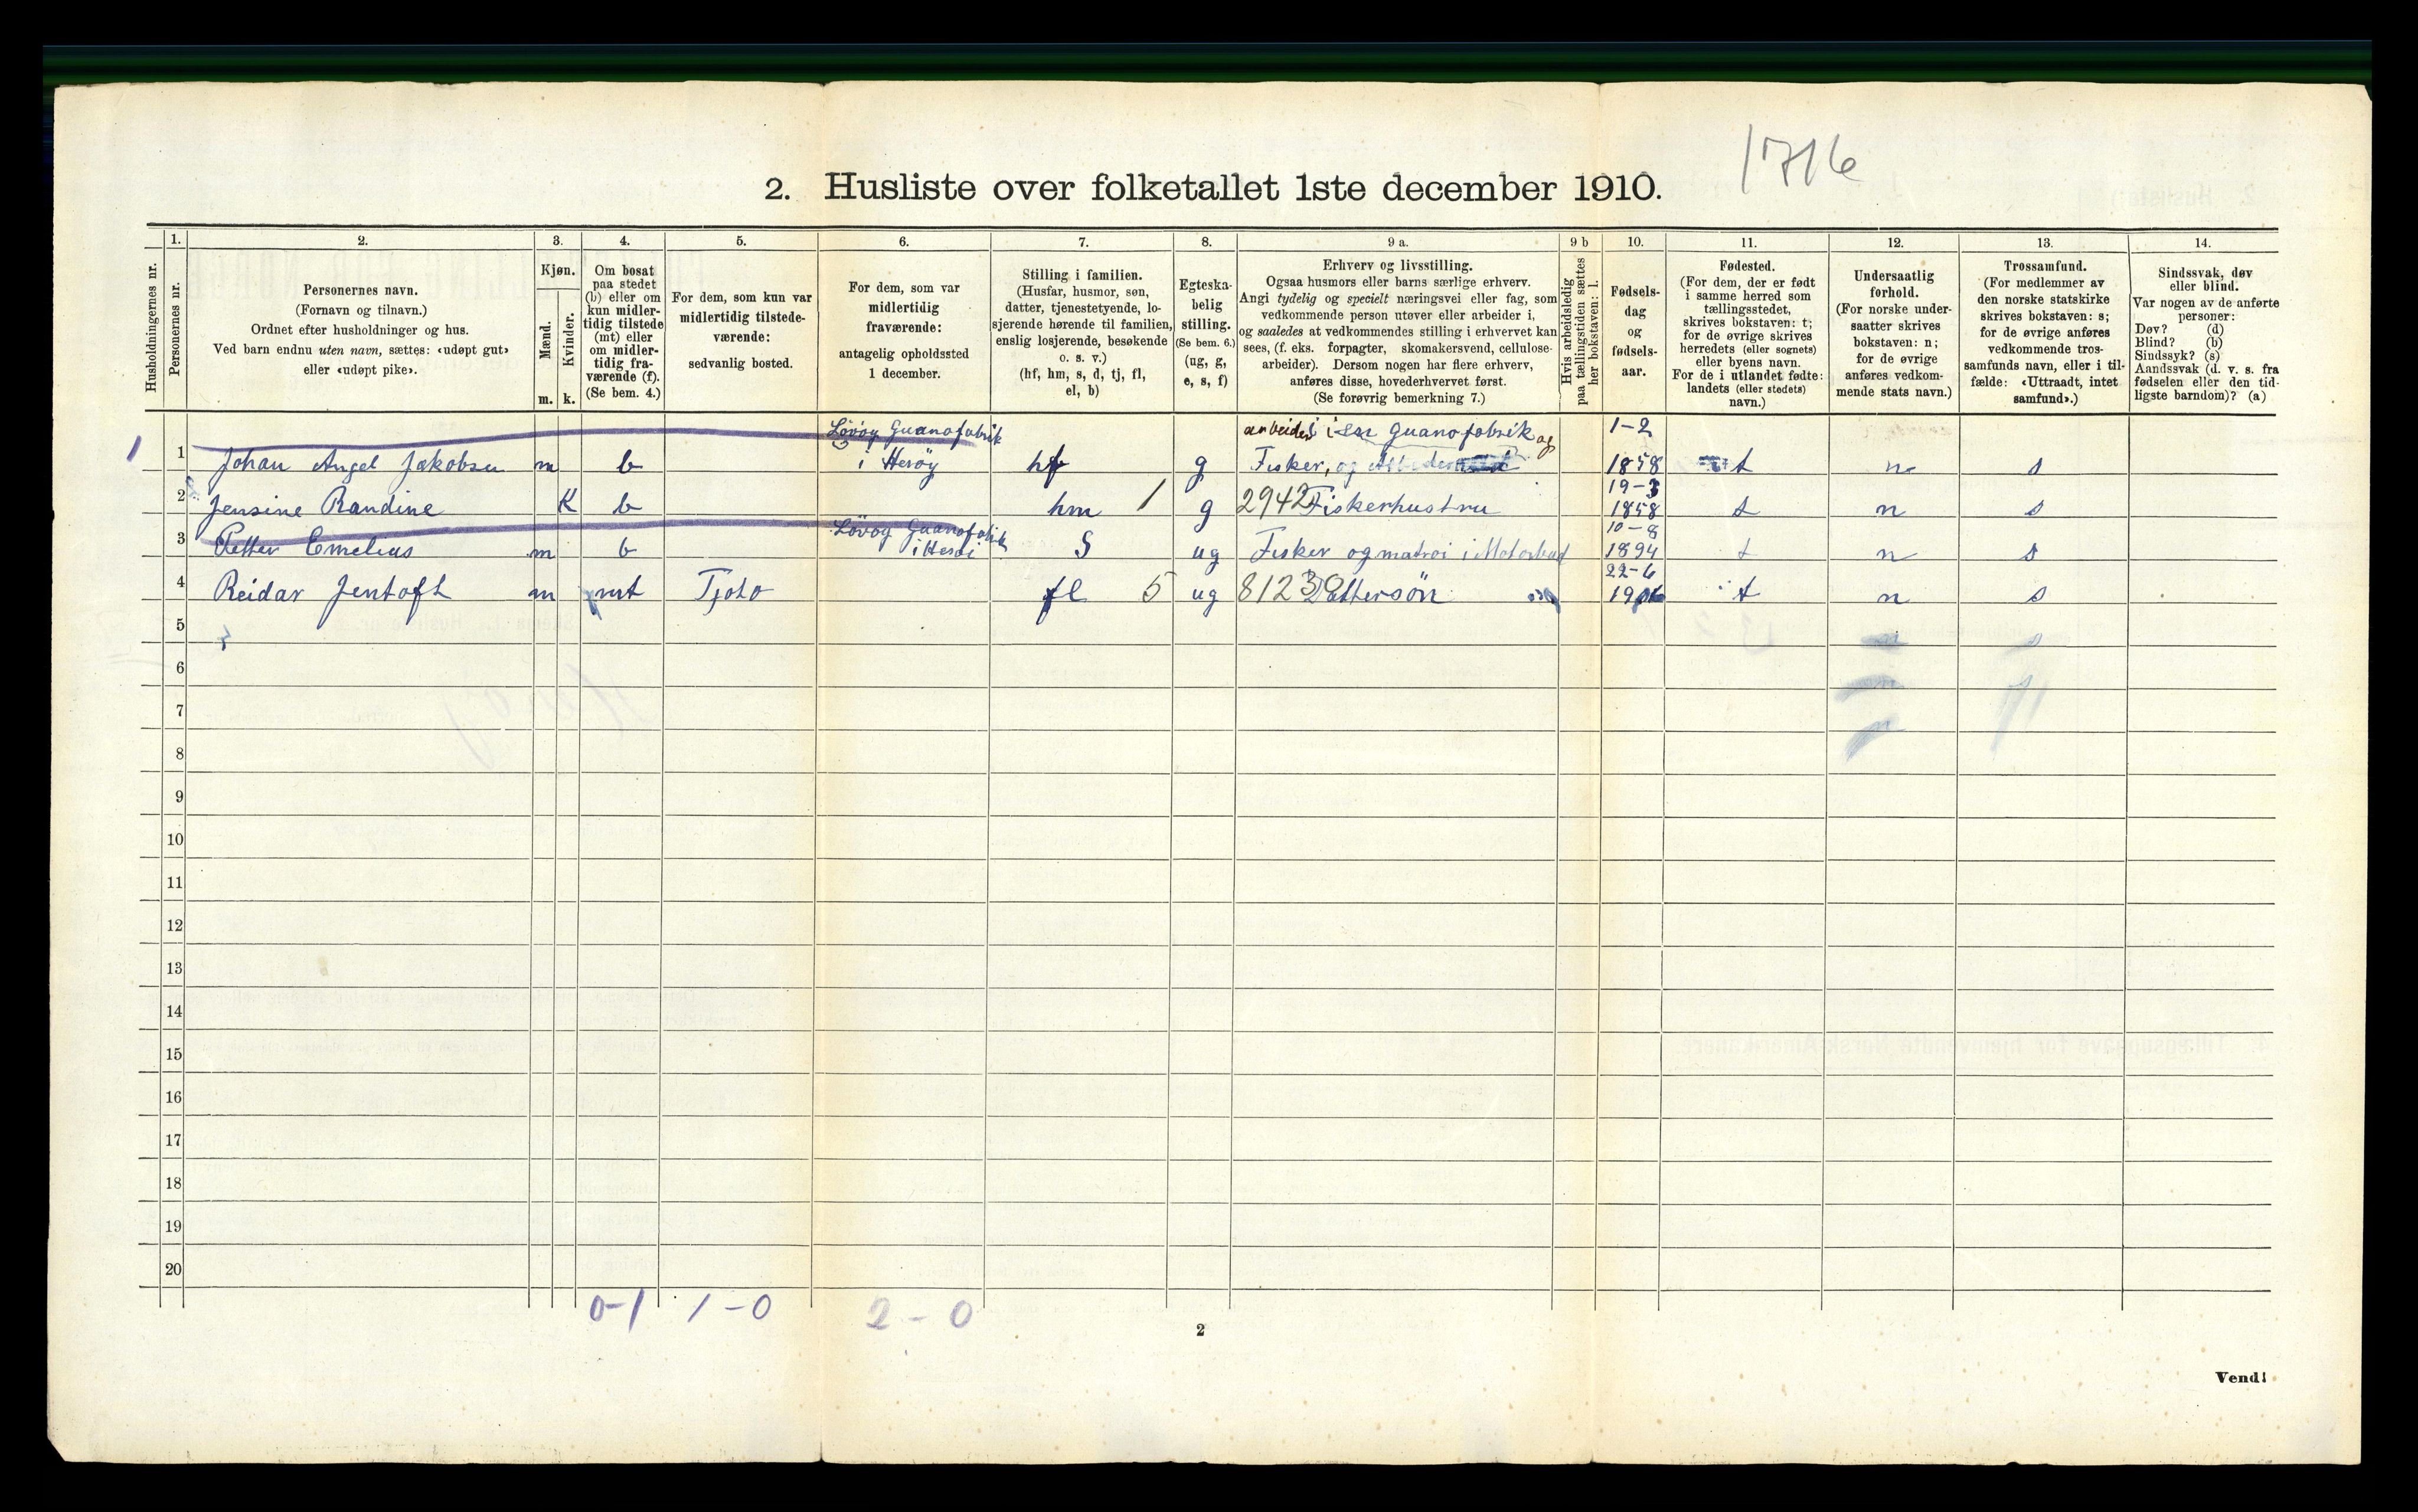 1716
2. Husliste over folketallet 1ste december 1910.
Husholdningernes nr.
1. 2. 3. 4. 5. 6. 7. 8. 9 a. 9 b 10. 11. 12. 13. 14.
Personernes nr.
Personernes navn.
(Fornavn og tilnavn.)
Ordnet efter husholdninger og hus.
Ved barn endnu uten navn, sættes: «udøpt gut»
eller «udøpt pike».
Kjøn.
Mænd.
Kvinder.
m. k.
Om bosat
paa stedet
(b) eller om
kun midler-
tidig tilstede
(mt) eller
om midler-
tidig fra-
værende (f).
(Se bem. 4.)
For dem, som kun var
midlertidig tilstede-
værende:
sedvanlig bosted.
For dem, som var
midlertidig
fraværende:
antagelig opholdssted
1 december.
Stilling i familien.
(Husfar, husmor, søn,
datter, tjenestetyende, lo-
sjerende hørende til familien,
enslig losjerende, besøkende
o. s. v.)
(hf, hm, s, d, tj, fl,
el, b)
Egteska-
belig
stilling.
(Se bem. 6.)
(ug, g,
e, s, f)
Erhverv og livsstilling.
Ogsaa husmors eller barns særlige erhverv.
Angi tydelig og specielt næringsvei eller fag, som
vedkommende person utøver eller arbeider i,
og saaledes at vedkommendes stilling i erhvervet kan
sees, (f. eks. forpagter, skomakersvend, cellulose-
arbeider). Dersom nogen har flere erhverv,
anføres disse, hovederhvervet først.
(Se forøvrig bemerkning 7.)
Hvis arbeidsledig
paa tællingstiden sættes
her bokstaven: l.
Fødsels-
dag
og
fødsels-
aar.
Fødested.
(For dem, der er født
i samme herred som
tællingsstedet,
skrives bokstaven: t;
for de øvrige skrives
herredets (eller sognets)
eller byens navn.
For de i utlandet fødte:
landets (eller stedets)
navn.)
Undersaatlig
forhold.
(For norske under-
saatter skrives
bokstaven: n;
for de øvrige
anføres vedkom-
mende stats navn.)
Trossamfund.
(For medlemmer av
den norske statskirke
skrives bokstaven: s;
for de øvrige anføres
vedkommende tros-
samfunds navn, eller i til-
fælde: «Uttraadt, intet
samfund».)
Sindssvak, døv
eller blind.
Var nogen av de anførte
personer:
Døv? (d)
Blind? (b)
Sindssyk? (s)
Aandssvak (d. v. s. fra
fødselen eller den tid-
ligste barndom)? (a)
Lövöy Guanofabrik arbeider i Guanofabrik og 1-2
1 1 Johan Angel Jakobsen m b i Heröy hf g Fisker, og 1858 t n s
19-3
2 Jensine Randine K b hm 1 g 2942 Fiskerhustru 1858 t n s
Lövöy Guanofabrik 10-8
3 Petter Emelius m b i Heröi S ug Fisker og matros i Motorbaad 1894 t n s
22-6
4 Reidar Jentoft m mt Tjøtø fl 5 ug 8123 Dattersön t n s
5 s
6
7
8
9
10
11
12
13
14
15
16
17
18
19
20
0-1 1-0 2-0
2
Vend!